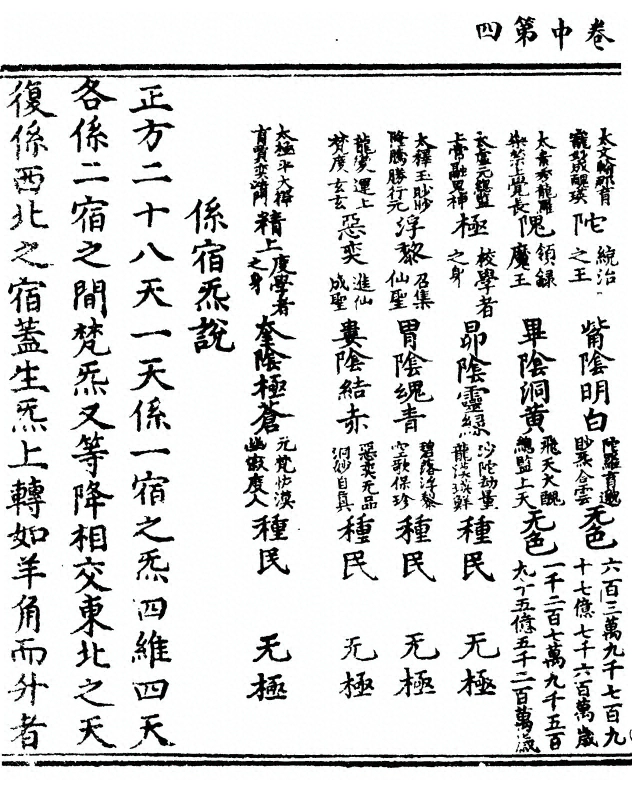 卷中第四
太文崎那育
醜瑛
陀
統治之王
觜陰明白
陀羅育邈
眇炁合雲
无色
六百三萬九千七百九
十七億七千六百萬歲
太素秀龍羅
上覺長
隗
領録魔王
畢陰洞黃
飛天大醜
總監上天
无色
一千二百七萬九千五百
九十五億五千二百萬歲
太虛元總監
上帝
極
校學者之身
昴陰靈綠
沙陀劫量
龍漢瑛鮮
種民
无極
太釋玉眇眇
降騰勝行元
浮黎
召集仙聖
胃陰魂青
碧落浮黎
空歌保珍
種民
无極
龍變運上
梵度玄玄
惡奕
進仙成聖
婁陰結赤
惡奕无品
洞妙自真
種民
无極
太極平
育賈奕
精上
度學者之身
奎陰極蒼
元梵恢漠
幽寂度人
種民
无極
係宿炁說
正方二十八天一天係一宿之炁四維四天
各係二宿之間梵炁又等降相交東北之天
復係西北之宿蓋生炁上轉如羊角而升者